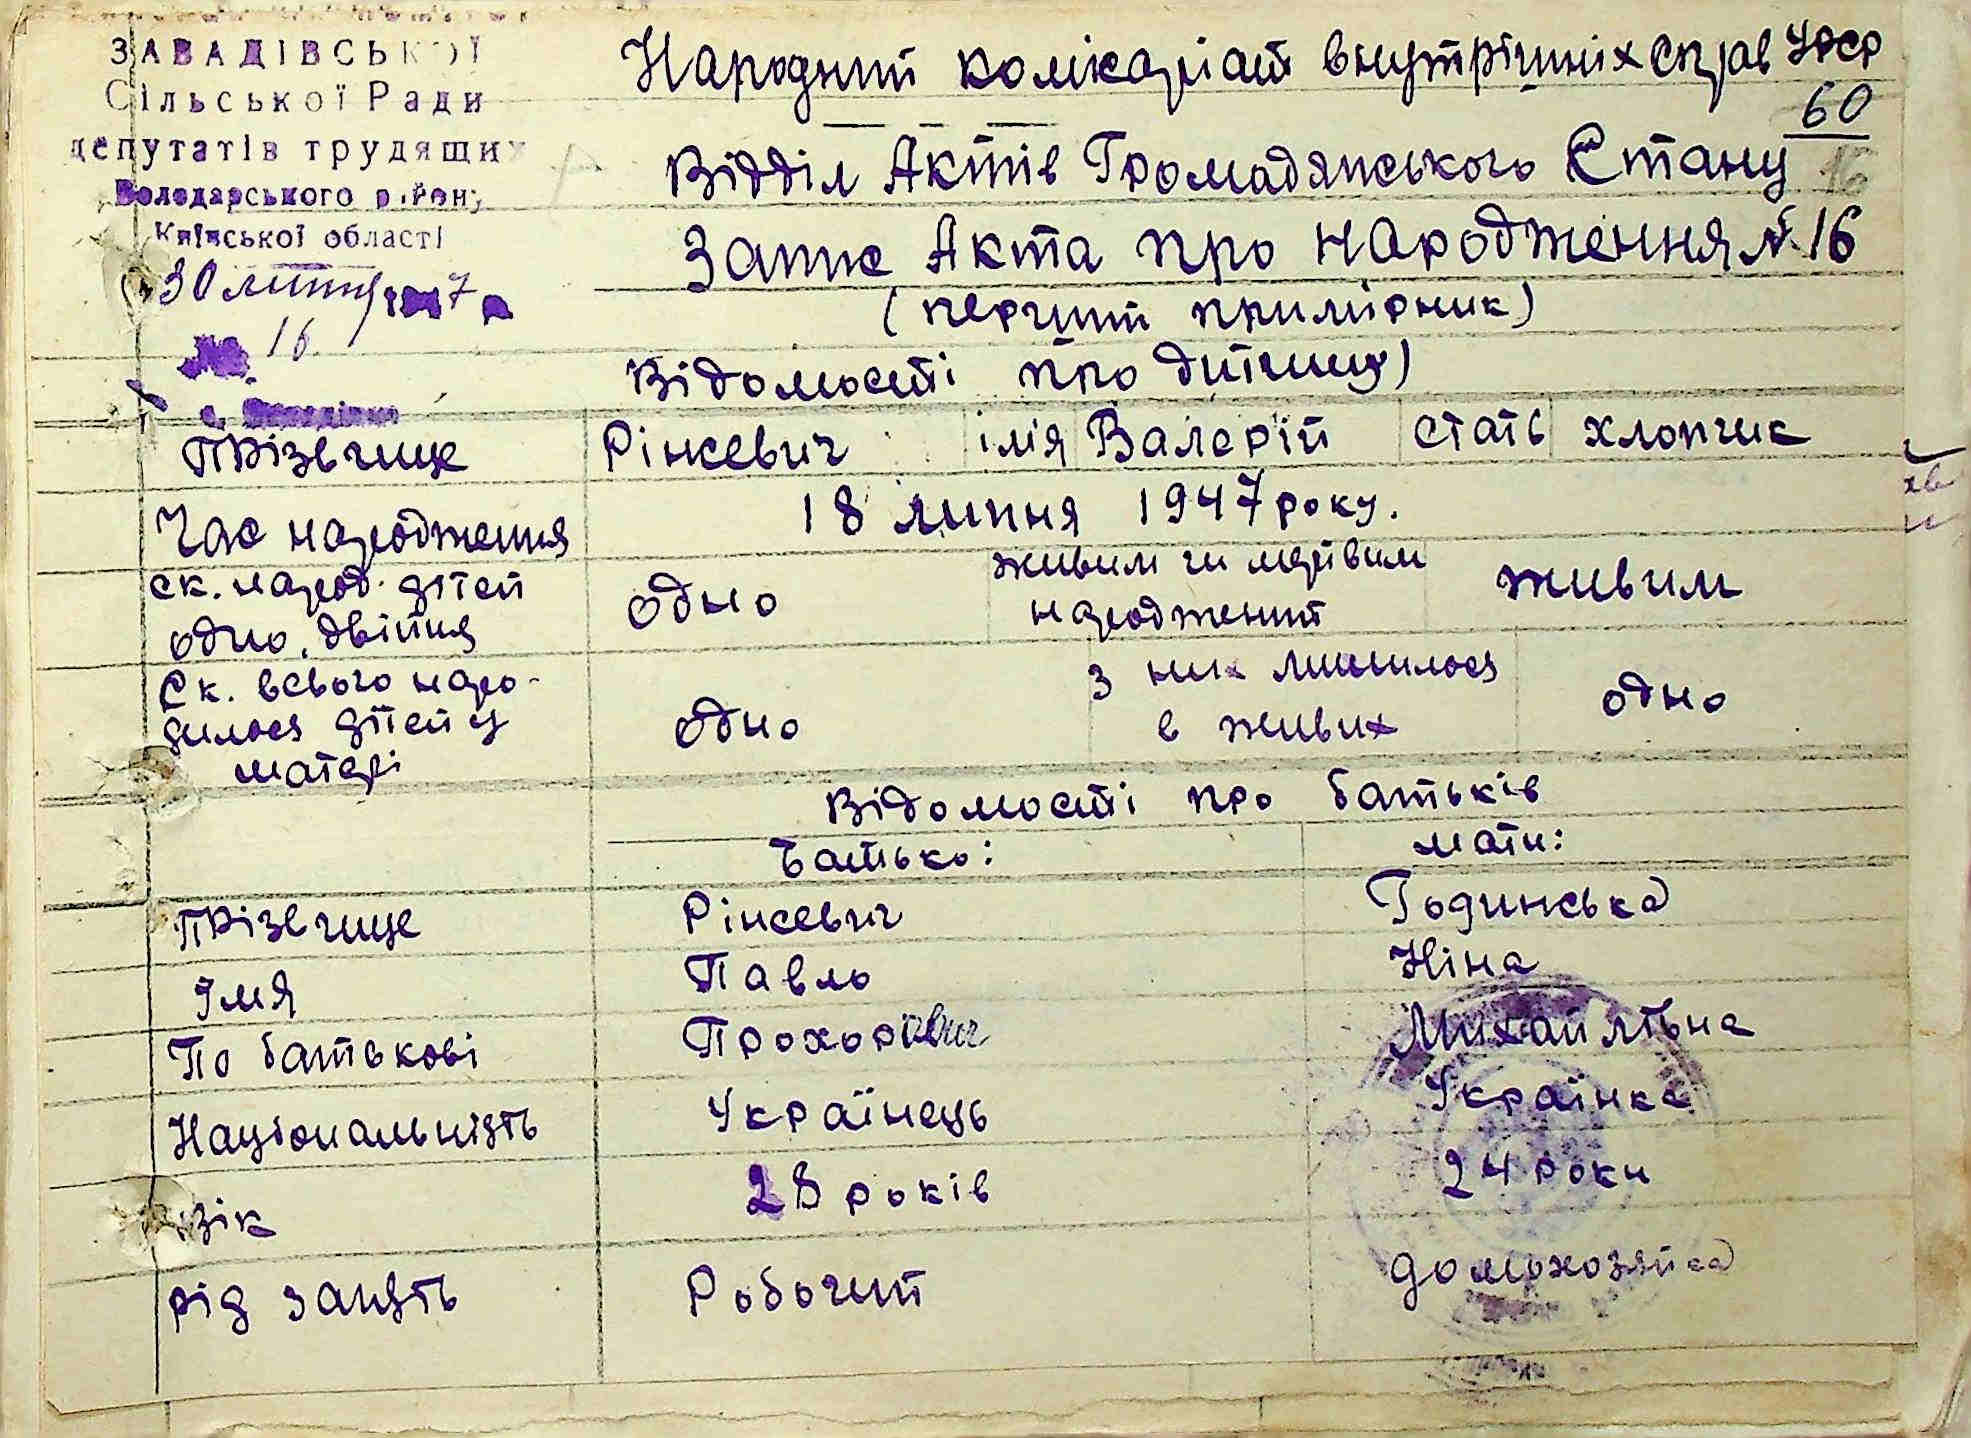 ЗАВАДІВСЬКОЇ
Сільської Ради
депутатів трудящих
Володарського району
Київської області
30 липня 1947 р
16
Народний комікаріат внутрішніх справ УРСР
60
16
Відділ Актів Громадянського Стану
Запис Акта про народження №16
(перший примірник)
Відомості про дитину)
Прізвище Рінкевич імя Валерій стать хлопчик
Час народження 18 липня 1947 року.
ск. народ. дітей
одно, двійня
одно
живим чи мертвим
народжений
живим
Ск. всього наро-
дилося дітей у
матері
одно
з них лишилося
в живих
одно
Відомості про батьків
Батько: мати:
Прізвище Рінкевич Годинська
Імя Павло Ніна
По батькові Прохорович Михайлівна
Національність Українець Українка
Вік 28 років 24 роки
рід занять Робочий домохозяйка